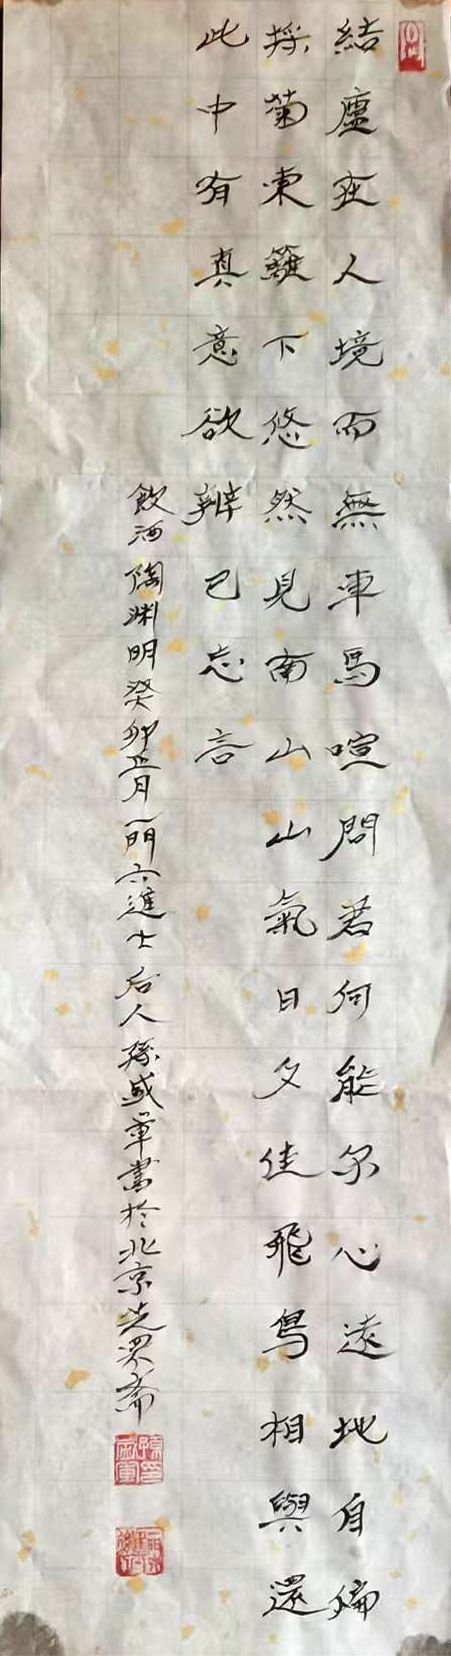 結廬在人境而無車馬喧問君何能尔心遠地自偏
採菊東籬下悠然見南山山氣日夕佳飛鳥相與還
此中有真意欲辨已忘言
飲酒陶渊明癸卯正月一門六進士后人孫盛章書於北京齋